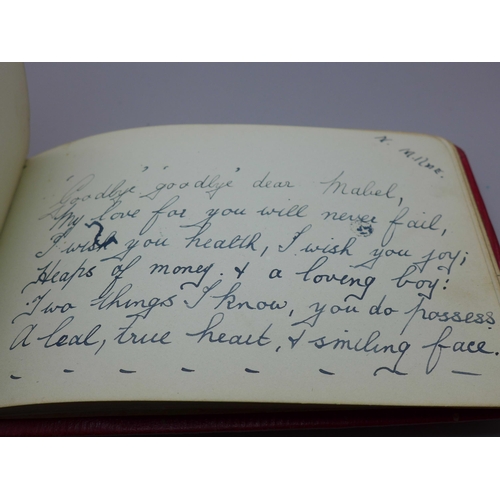 N. Milne.
"Goodbye" "goodbye" dear Mabel,
My love for you will never fail,
I wish you health, I wish you joy;
Heaps of money. & a loving boy:
Two things I know, you do possess
A leal, true heart, & smiling face.